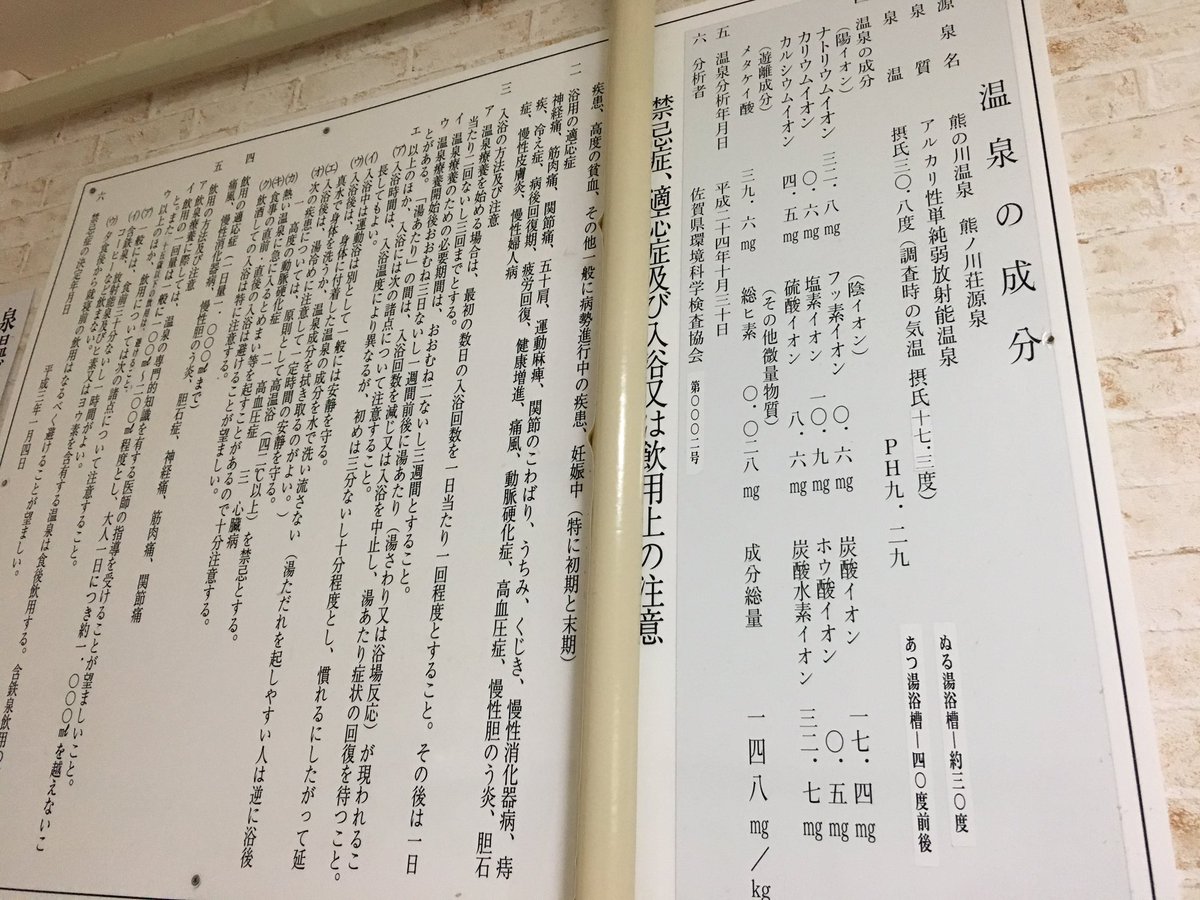 温泉の成分
源泉名　熊の川温泉　熊ノ川荘源泉
泉質　アルカリ性単純弱放射能温泉
泉温　摂氏三〇・八度(調査時の気温　摂氏十七・三度)
PH九・二九
ぬる湯浴槽―約三〇度
あつ湯浴槽―四〇度前後
温泉の成分
(陽イオン)　(陰イオン)
ナトリウムイオン　三二・八㎎　フッ素イオン　〇・六㎎　炭酸イオン　一七・四㎎
カリウムイオン　〇・六㎎　塩素イオン　一〇・九㎎　ホウ酸イオン　一〇・五㎎
カルシウムイオン　四・五㎎　硫酸イオン　八・六㎎　炭酸水素イオン　三二・七㎎
(遊離成分)　(その他微量物質)
メタケイ酸　三九・六㎎　総ヒ素　〇・〇二八㎎　成分総量　一四八㎎/kg
五　温泉分析年月日　平成二十四年十月三十日
六　分析者　佐賀県環境科学検査協会　第〇〇〇二号
禁忌症、適応症及び入浴又は飲用上の注意
疾患、高度の貧血、その他一般に病勢進行中の疾患、妊娠中(特に初期と末期)
二　浴用の適応症
神経痛、筋肉痛、関節痛、五十肩、運動麻痺、関節のこわばり、うちみ、くじき、慢性消化器病、痔
疾、冷え症、病後回復期、疲労回復、健康増進、痛風、動脈硬化症、高血圧症、慢性胆のう炎、胆石
症、慢性皮膚炎、慢性婦人病
三　入浴の方法及び注意
ア　温泉療養を始める場合は、最初の数日の入浴回数を一日当たり一回程度とすること。その後は一日
当たり二回ないし三回までとする。
イ　温泉療養のための必要期間は、おおむね二ないし三週間とすること。
ウ　温泉療養開始後おおむね三日ないし一週間前後に湯あたり(湯さわり又は浴場反応)が現われるこ
とがある。「湯あたり」の間は、入浴回数を減じ又は入浴を中止し、湯あたり症状の回復を待つこと。
エ　以上のほか、入浴には次の諸点について注意すること。
(ア)　入浴時間は、入浴温度により異なるが、初めは三分ないし十分程度とし、慣れるにしたがって延
長してもよい。
(イ)　入浴中は運動浴は別として一般には安静を守る。
(ウ)　入浴後は、身体に付着した温泉の成分を水で洗い流さない(湯ただれを起しやすい人は逆に浴後
真水で身体を洗うか、温泉成分を拭き取るのがよい。)
(エ)　入浴後は、湯冷めに注意して一定時間の安静を守る。
(オ)　次の疾患については、原則として高温浴(四二℃以上)を禁忌とする。
一　高度の動脈硬化症　二　高血圧症　三　心臓病
(カ)　熱い温泉に急に入るとめまい等を起すことがあるので十分注意する。
(キ)　食事の直前・直後の入浴は避けることが望ましい。
(ク)　飲酒しての入浴は特に注意する。
四　飲用の適応症(一日量一・〇〇〇㎖まで)
痛風、慢性消化器病、慢性胆のう炎、胆石症、神経痛、筋肉痛、関節痛
五　飲用の方法及び注意
ア　温泉療養に際しては、温泉の専門的知識を有する医師の指導を受けることが望ましいこと。
イ　飲用の一回量は一般に一〇〇㎖ないし二〇〇㎖程度とし、大人一日につき約一・〇〇〇㎖を越えないこ
と。
ウ　以上のほか、飲用については次の諸点について注意すること。
(ア)　一般には、食前三十分ないし一時間がよい。
(イ)　含鉄泉、放射能泉及びヒ素又はヨウ素を含有する温泉は食後飲用する。含鉄泉飲用
(ウ)　夕食後から就寝前の飲用はなるべく避けることが望ましい。
六　禁忌症の決定年月日　平成三年一月四日